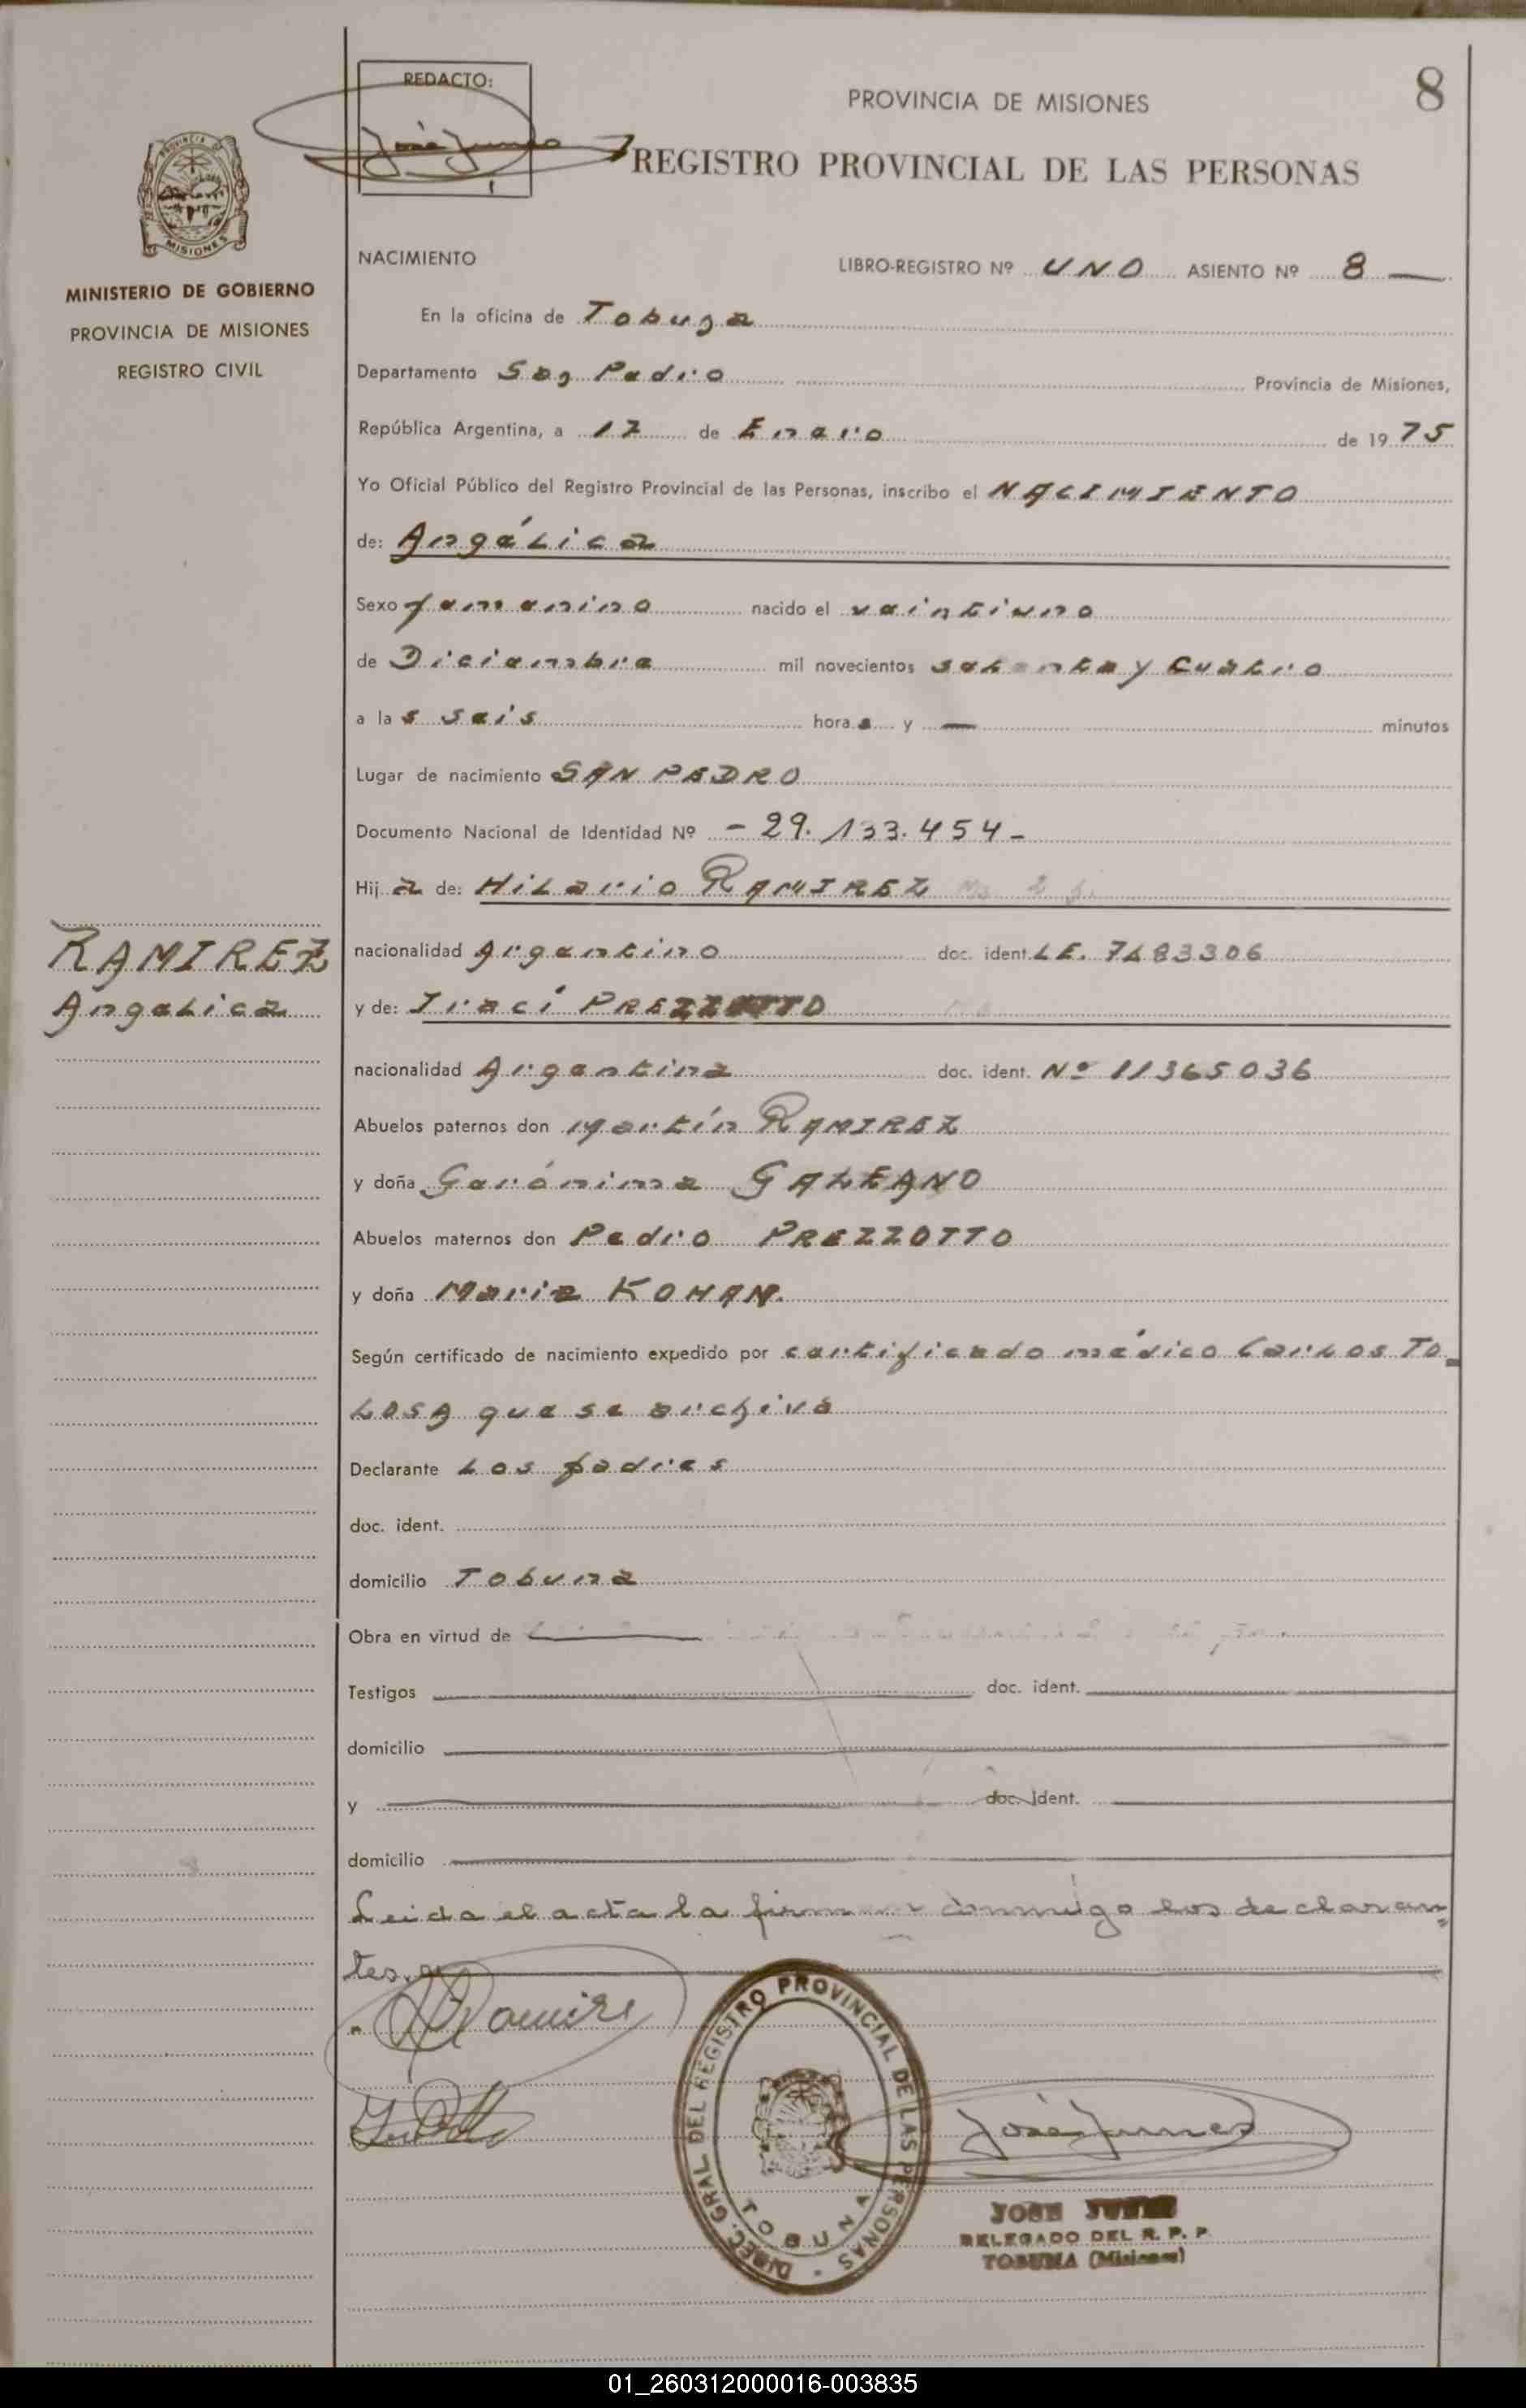 8
REDACTO:
José Junes
PROVINCIA DE MISIONES
REGISTRO PROVINCIAL DE LAS PERSONAS
PROVINCIA DE
MISIONES
MINISTERIO DE GOBIERNO
PROVINCIA DE MISIONES
REGISTRO CIVIL
NACIMIENTO LIBRO-REGISTRO Nº UNO ASIENTO Nº 8
En la oficina de Tobuna
Departamento San Pedro Provincia de Misiones,
República Argentina, a 17 de Enero de 1975
Yo Oficial Público del Registro Provincial de las Personas, inscribo el NACIMIENTO
de: Angélica
Sexo femenino nacido el veintiuno
de Diciembre mil novecientos setenta y cuatro
a las seis horas y — minutos
Lugar de nacimiento SAN PEDRO
Documento Nacional de Identidad Nº - 29.133.454 -
Hija de: Hilario RAMIREZ
RAMIREZ
Angelica
nacionalidad Argentino doc. ident. LE.
y de: Iraci PREZZOTTO
nacionalidad Argentina doc. ident. Nº 11365036
Abuelos paternos don Martín RAMIREZ
y doña Gerónima GALEANO
Abuelos maternos don Pedro PREZZOTTO
y doña Maria KOHAN.
Según certificado de nacimiento expedido por certificado médico Carlos TO-
LOSA que se archiva
Declarante Los padres
doc. ident.
domicilio Tobuna
Obra en virtud de
Testigos doc. ident.
domicilio
y doc. ident.
domicilio
Leida el acta la firman conmigo los declaran-
tes.
DIREC. GRAL DEL REGISTRO PROVINCIAL DE LAS PERSONAS
TOBUNA
José Junes
JOSE JUNES
DELEGADO DEL R. P. P.
TOBUNA (Misiones)
01_260312000016-003835